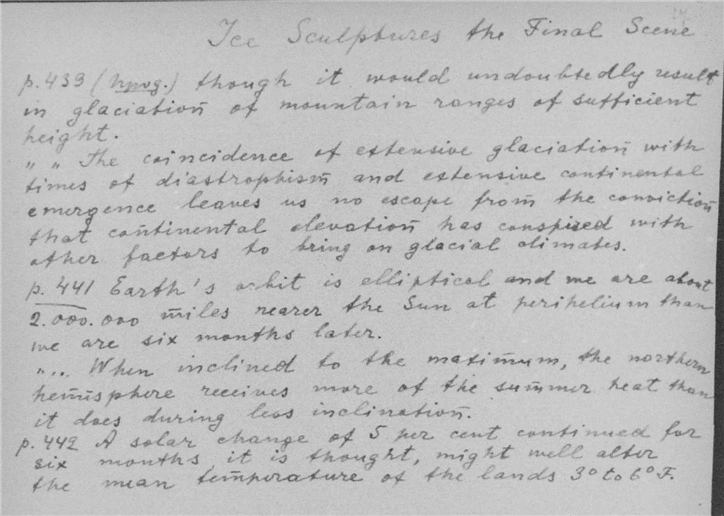 Ice Sculptures the Final Scene
p. 439 (                ) though it would undoubtedly result
in glaciation of mountain ranges of sufficient
height.
" " The coincidence of extensive glaciation with
times of diastrophism and extensive continental
emergence leaves us no escape from the conviction
that continental elevation has conspired with
other factors to bring on glacial climates.
p. 441 Earth's orbit is elliptical and we are about
2.000.000 miles nearer the Sun at perihelium than
we are six months later.
"... When inclined to the maximum, the northern
hemisphere receives more of the summer heat than
it does during less inclination.
p. 442 A solar change of 5 per cent continued for
six months it is thought, might well alter
the mean temperature of the lands 3° to 6° F.